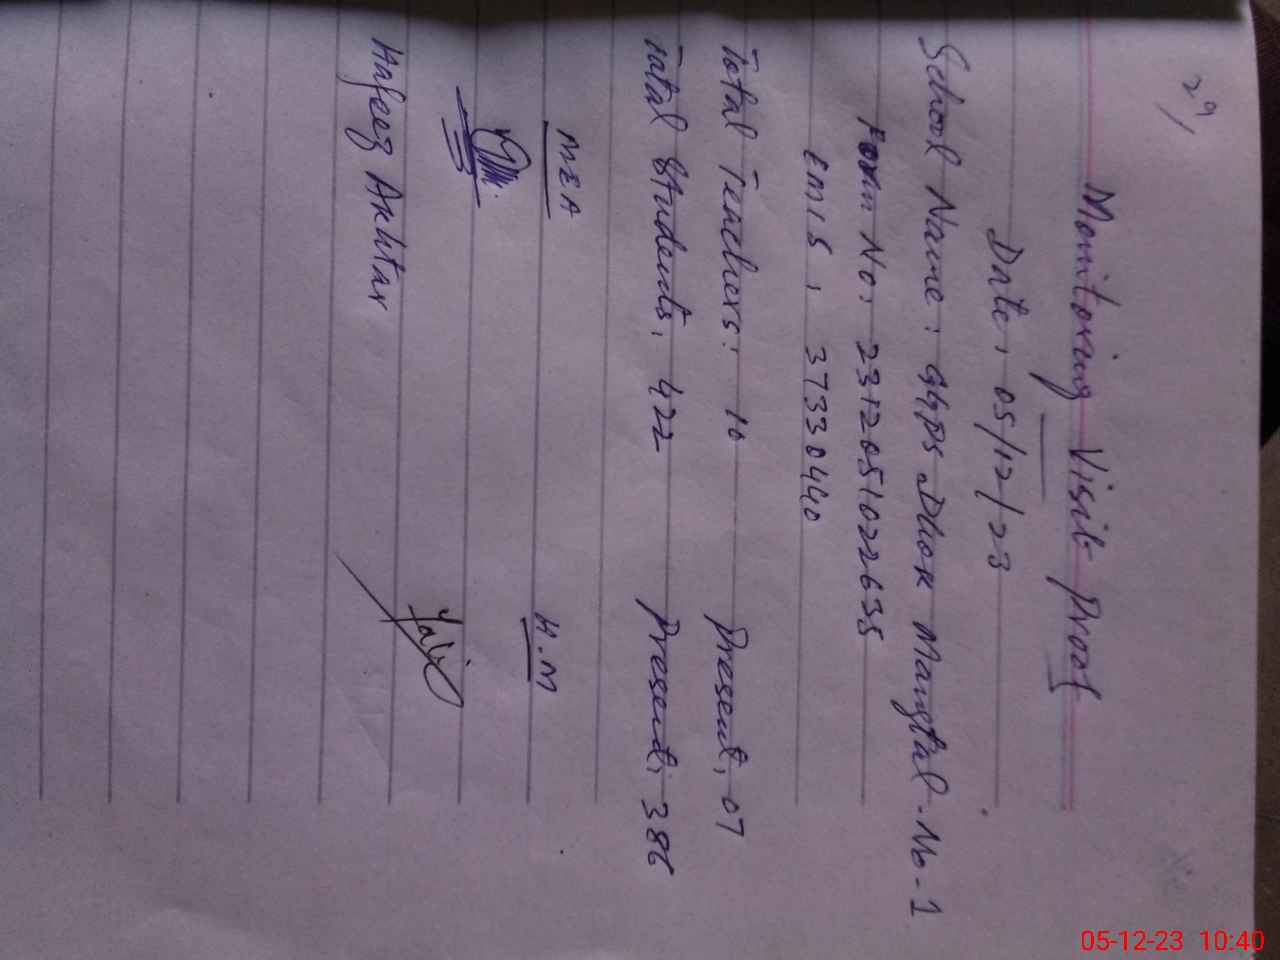 29/
Monitoring Visit Proof
Date: 05/12/23
School Name: GGPS Dhok Mangtal-No-1
Form No: 2312051022635
EMIS: 37330440
Total Teachers: 10 Present: 07
Total Students: 422 Present: 386
MEA H.M
Hafeez Akhtar
05-12-23 10:40